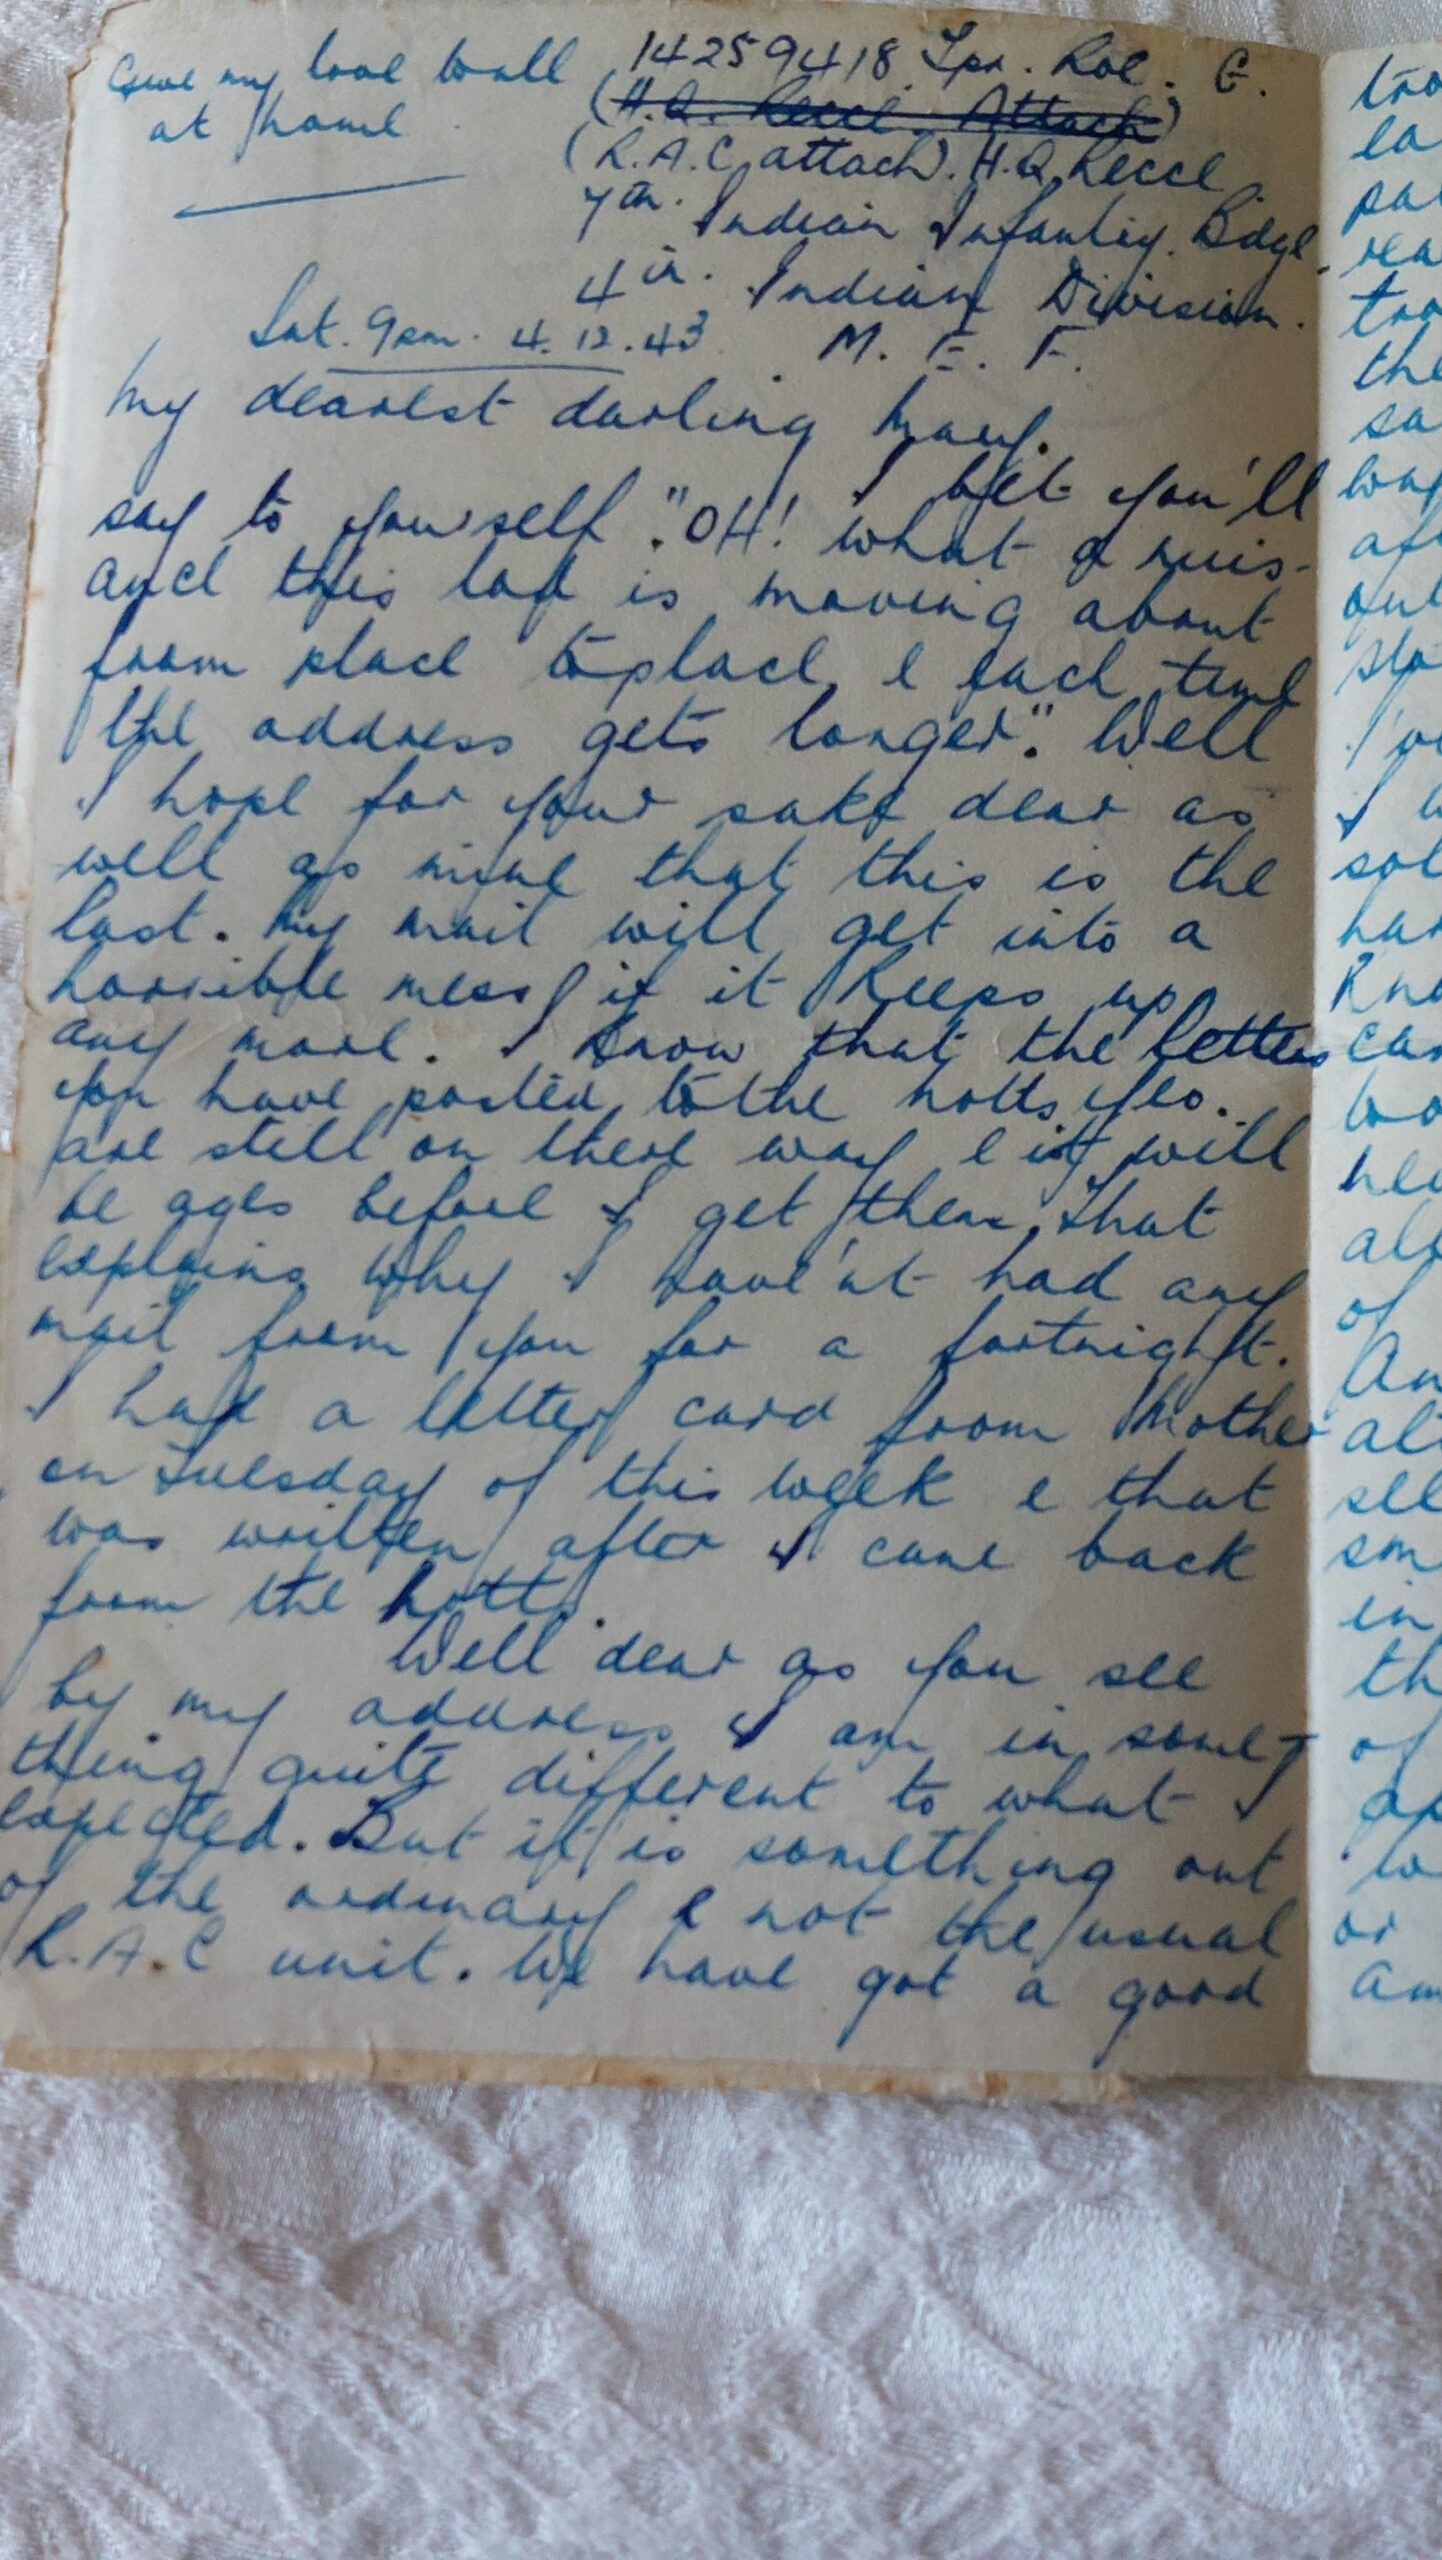 Give my love to all
at home
14259418 Tpr. Roe. G.
(H.Q. Recce. Attach)
(R.A.C attach). H.Q. Recce
7th. Indian Infantry. Bdge.
4th. Indian Division.
M. E. F.
Sat. 9pm. 4.12.43
My dearest darling Mary.
I bet you'll
say to yourself "OH! what a nuis-
ance this lad is moving about
from place to place, & each time
the address gets longer". Well
I hope for your sake dear as
well as mine that this is the
last. My mail will get into a
horrible mess if it keeps up
any more. I know that the letters
you have posted to the Notts Yeo.
are still on there way & it will
be ages before I get them. That
explains why I have'nt had any
mail from you for a fortnight.
I had a letter card from Mother
on Tuesday of this week & that
was written after I came back
from the Notts.
Well dear as you see
by my address I am in some-
thing quite different to what I
expected. But it is something out
of the ordinary & not the usual
R.A.C unit. We have got a good